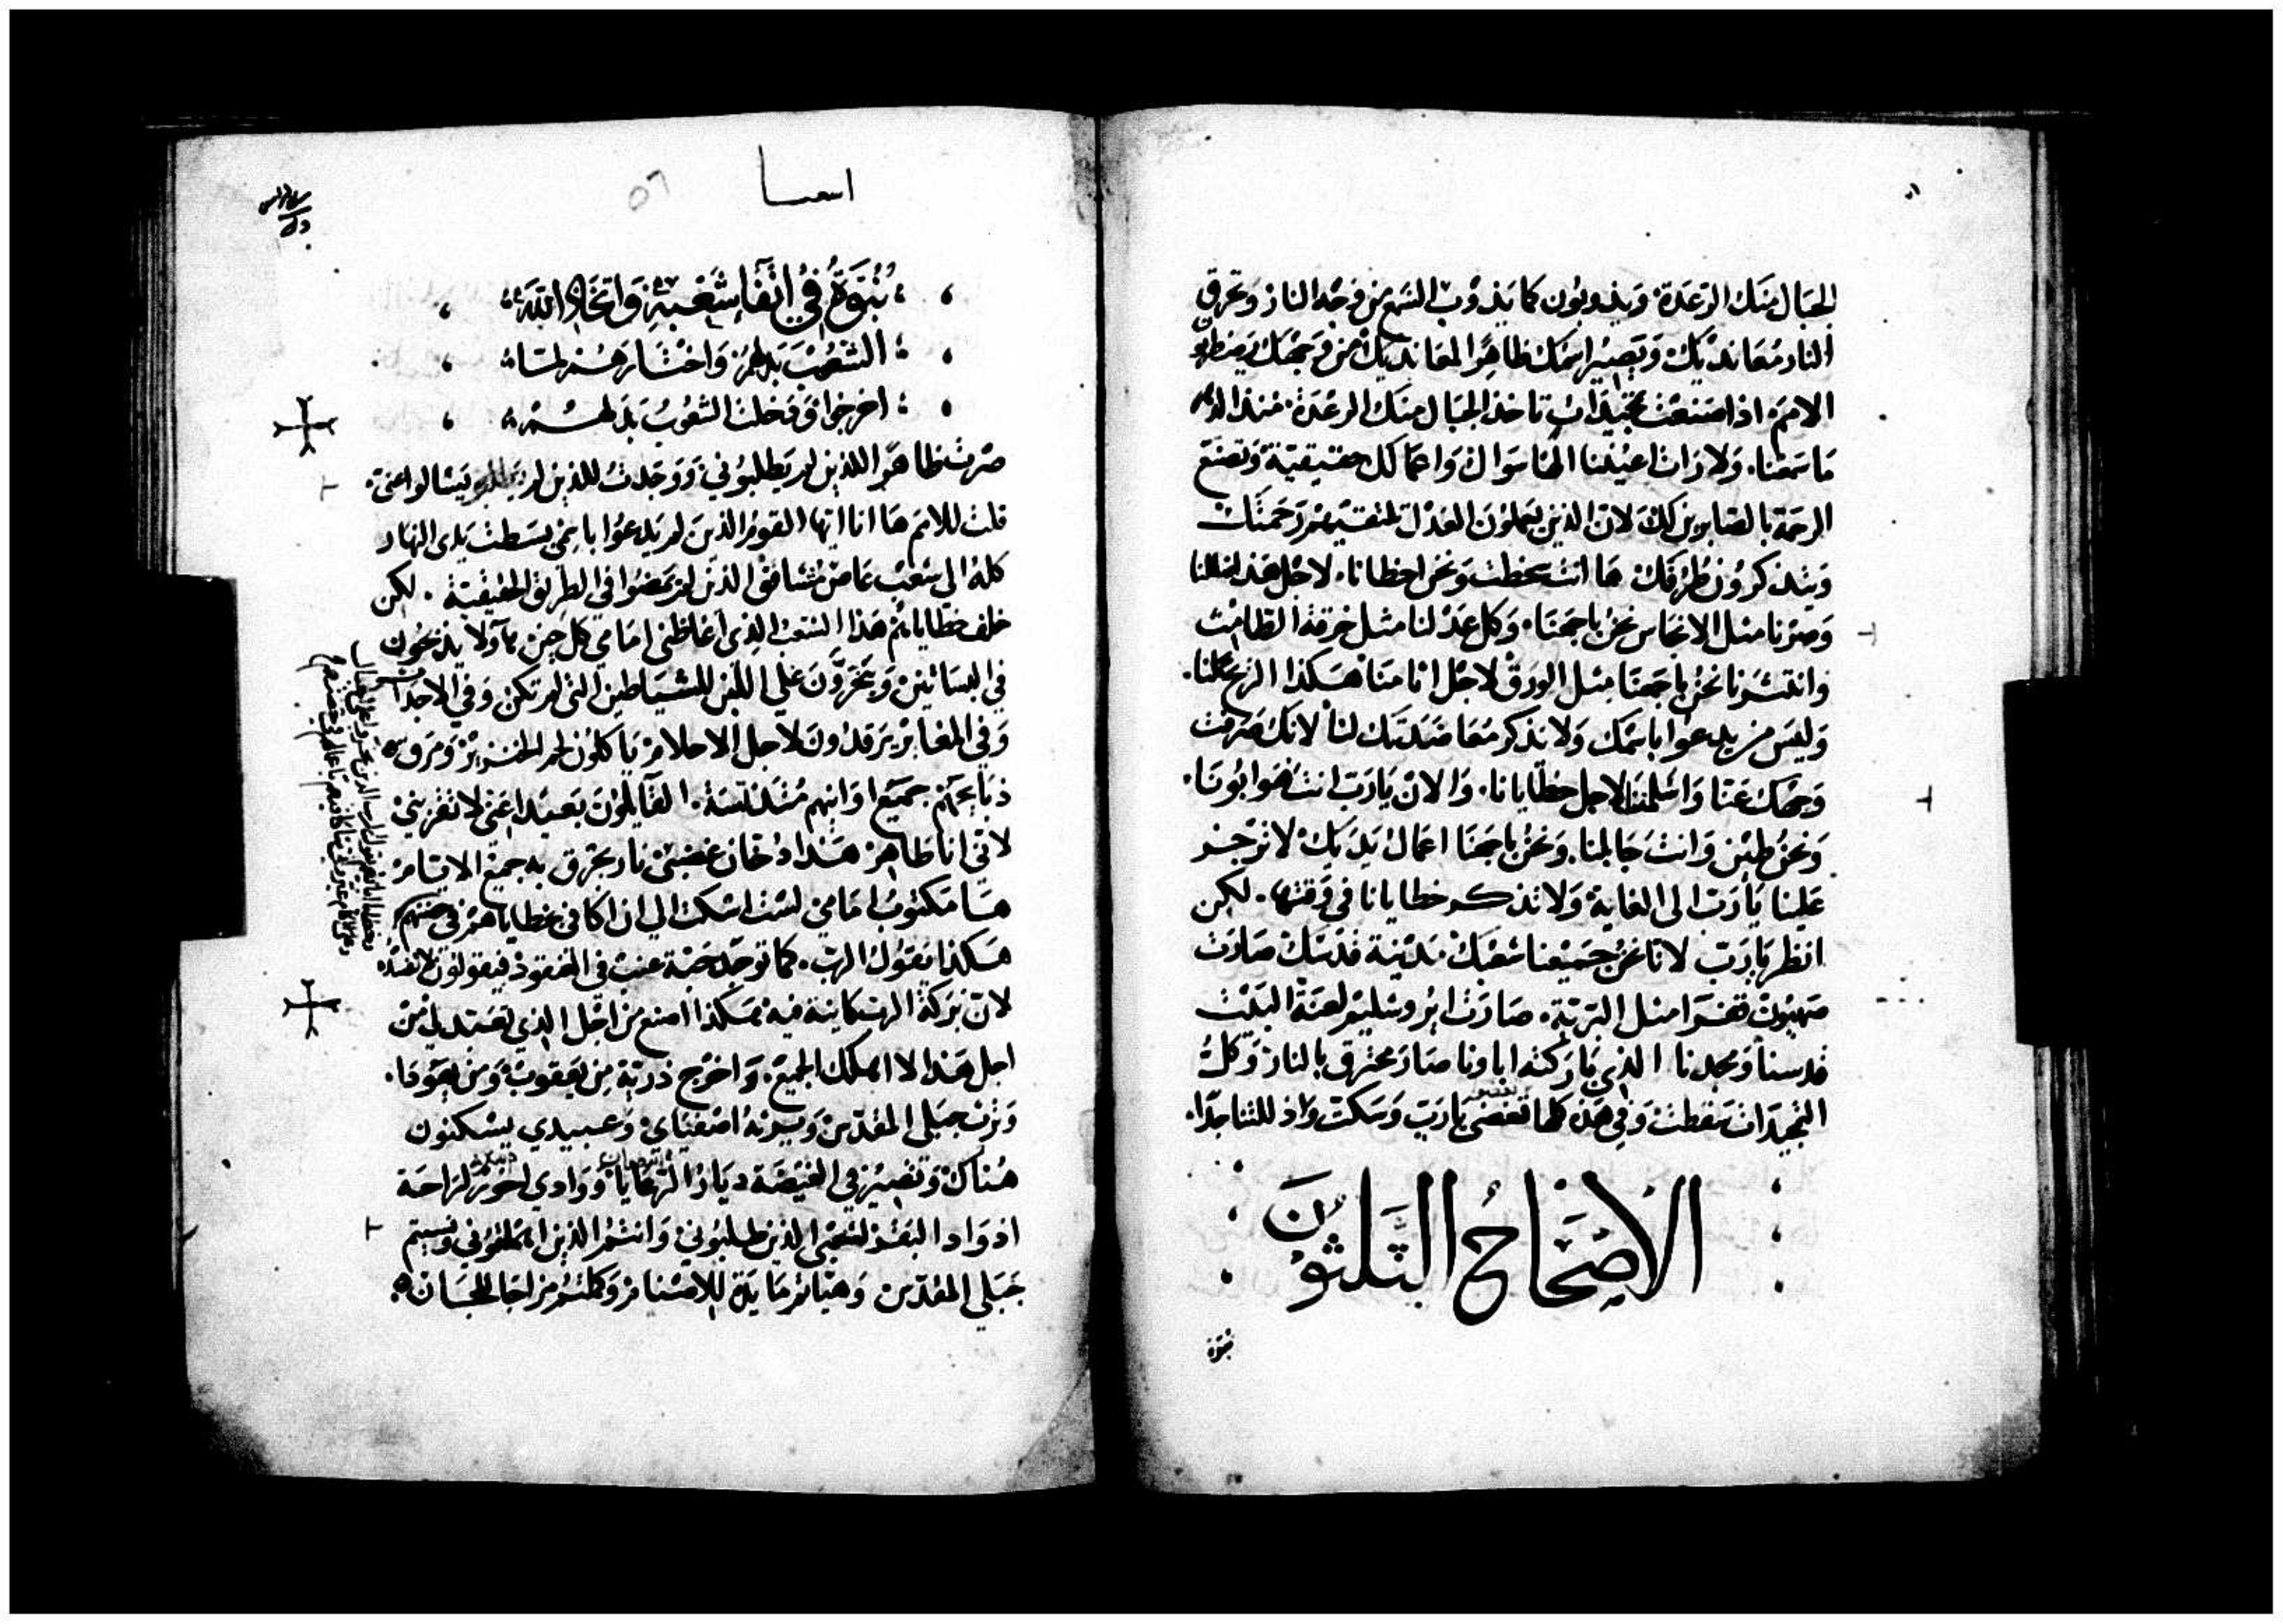 الجبال منك الرعدة. ويذوبون كما يذوب الشمع من وجه النار وتحرق
النار معانديك ويصير اسمك ظاهرا لمعانديك من وجهك يضطرب
الامم. اذا صنعت تمجيدات تاخذ الجبال منك الرعدة. منذ الدهر
ما سمعنا. ولا رات اعيننا الها سواك واعمالك حقيقية وتصنع
الرحمة بالصابرين لك لان الذين يعملون العدل رحمتك
ويتذكرون طرقك ها انت سخطت ونحن اخطانا. لاجل هذا ضللنا
وصرنا مثل الانجاس نحن باجمعنا. وكل عدلنا مثل خرقة الطامث
وانتثرنا نحن باجمعنا مثل الورق لاجل اثامنا هكذا الريح تحملنا.
وليس من يدعوا باسمك ولا يذكر معاضدتك لنا لانك صرفت
وجهك عنا واسلمتنا لاجل خطايانا. والان يارب انت هو ابونا.
ونحن طين وانت جابلنا. ونحن باجمعنا اعمال يديك لا ترجز
علينا يارب الى الغاية ولا تذكر خطايانا في وقتها. لكن
انظر يارب لانا نحن جميعنا شعبك. مدينة قدسك صارت
صهيون قفرا مثل البرية. صارت ايروشليم لعنة البيت
قدسنا ومجدنا الذي باركته اباونا صار محترق بالنار وكل
التمجيدات سقطت وفي هذه كلها تغضي يارب وسكت واذللتنا جدا.
الاصحاح الثلثون
نبوة
اسعيا
نبوة في انتفا شعبه واتخاد الله
الشعوب بدلهم واختارهم لمسا
اخرجوا ودخلت الشعوب بدلهم
صرت ظاهرا للذين لم يطلبوني ووجدت للذين لم يسالوا عني.
قلت للامم ها انا ايها القوم الذين لم يدعوا باسمي بسطت يدي النهار
كله الى شعب عاص مشاقق الذين لم يمضوا في الطريق الحقيقية. لكن
خلف خطاياهم هذا الشعب الذي اغاظني امامي كل حين هاولا يذبحون
في البساتين ويبخرون على اللبن للشياطين التي لم تكن وفي الاجداث
وفي المغاير يرقدون لاجل الاحلام ياكلون لحم الخنزير ومرق
ذبايحهم جميع اوانيهم مدنسة. القايلون بعيدا عني لا تقربني
لاني انا طاهر هذا دخان غضبي نار يحترق به جميع الايام
ها مكتوب امامي لست اسكت الي ان اكافي خطاياهم في حضنهم
هكذا يقول الرب. كما توجد حبة عنب في العنقود فيقولون لا تفسده
لان بركة الرب كاينة فيه هكذا اصنع من اجل الذي تعبد لي من
اجل هذا لا اهلك الجميع. واخرج ذرية من يعقوب ومن يهوذا.
وترث جبلي المقدس ويرثه اصفياي وعبيدي يسكنون
هناك وتصير في الغيضة ديار الرعايا ووادي اخور لراحة
اذواد البقر لشعبي الذين طلبوني وانتم الذين اهملتموني ونسيتم
جبلي المقدس وهياتم مايدة للاصنام وملتم مزاجا للجان